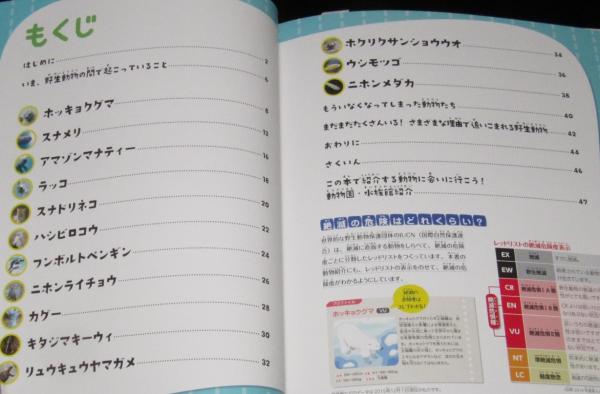 もくじ
はじめに 2
いま、野生動物の間で起こっていること 5
ホッキョクグマ 8
スナメリ 12
アマゾンマナティー 16
ラッコ 18
スナドリネコ 20
ハシビロコウ 22
フンボルトペンギン 24
ニホンライチョウ 26
カグー 28
キタジマキーウィ 30
リュウキュウヤマガメ 32
ホクリクサンショウウオ 34
ウシモツゴ 36
ニホンメダカ 38
もういなくなってしまった動物たち 40
まだまだたくさんいる! さまざまな理由で追いこまれる野生動物 42
おわりに 44
さくいん 46
この本で紹介する動物に会いに行こう!
動物園・水族館紹介 47
絶滅の危険はどれくらい?
世界的な野生動物保護団体のIUCN(国際自然保護連
合)は、絶滅に直面する動物をしらべて、絶滅の危険
度ごとに分類したレッドリストをつくっています。本書の
動物紹介にも、レッドリストの表示をのせて、絶滅の危
険度がわかるようにしています。
ホッキョクグマ VU
レッドリストの絶滅危険度表示
EX 絶滅
EW 野生絶滅
CR
EN
VU
NT
LC